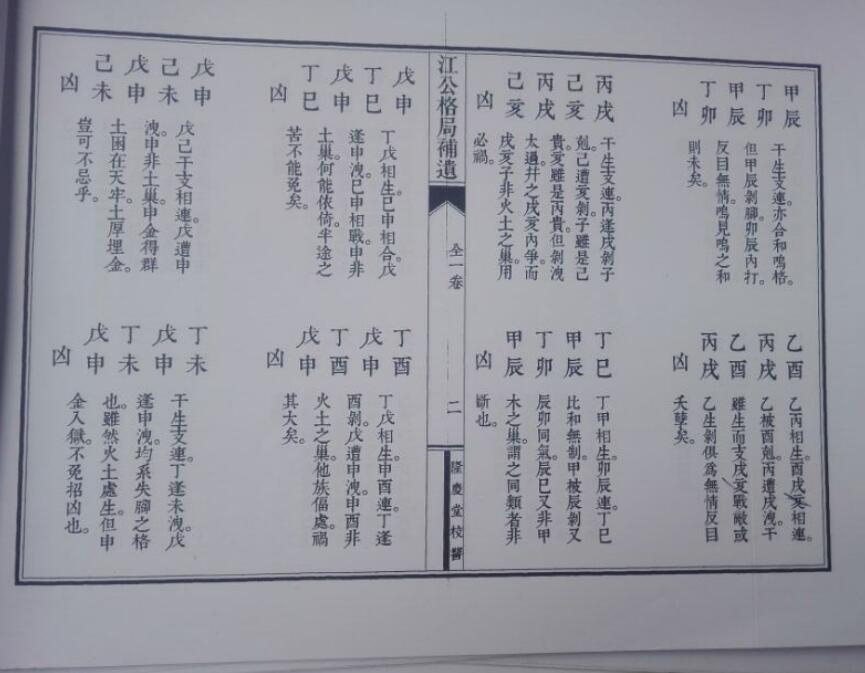 甲辰
丁卯
甲辰
丁卯
凶
干生支連。亦合和鳴格。
但甲辰剝腳。卯辰內打。
反目無情。鳴見鳴之和
則未矣。
乙酉
丙戌
乙酉
丙戌
凶
乙丙相生。酉戌亥相連。
乙被酉剋。丙遭戌洩。干
雖生而支戌亥戰敵。或
乙生剝俱為無情反目
夭孽矣。
丙戌
己亥
丙戌
己亥
凶
干生支連。丙逢戌剝子
剋。己遭亥剝。子雖是己
貴。亥雖是丙貴。但剝洩
太過。幷之戌亥內爭。而
戌亥子非火土之巢。用
必禍。
丁巳
甲辰
丁卯
甲辰
凶
丁甲相生。卯辰連。丁巳
比和無制。甲被辰剝。又
辰卯同氣。辰巳又非甲
木之巢。謂之同類者非
斷也。
江公格局補遺
全一卷
二
隆慶堂校醫
戊申
丁巳
戊申
丁巳
凶
丁戊相生。巳申相合。戊
逢申洩。巳申相戰。申非
土巢。何能依倚。半途之
苦不能免矣。
丁酉
戊申
丁酉
戊申
凶
丁戊相生。申酉連。丁逢
酉剝。戊遭申洩。申酉非
火土之巢。他族偪處。禍
其大矣。
戊申
己未
戊申
己未
凶
戊己干支相連。戊遭申
洩。申非土巢。申金得群
土困在天牢。土厚埋金。
豈可不忌乎。
丁未
戊申
丁未
戊申
凶
干生支連。丁逢未洩。戊
逢申洩。均系失腳之格
也。雖然火土處生。但申
金入獄。不免招凶也。